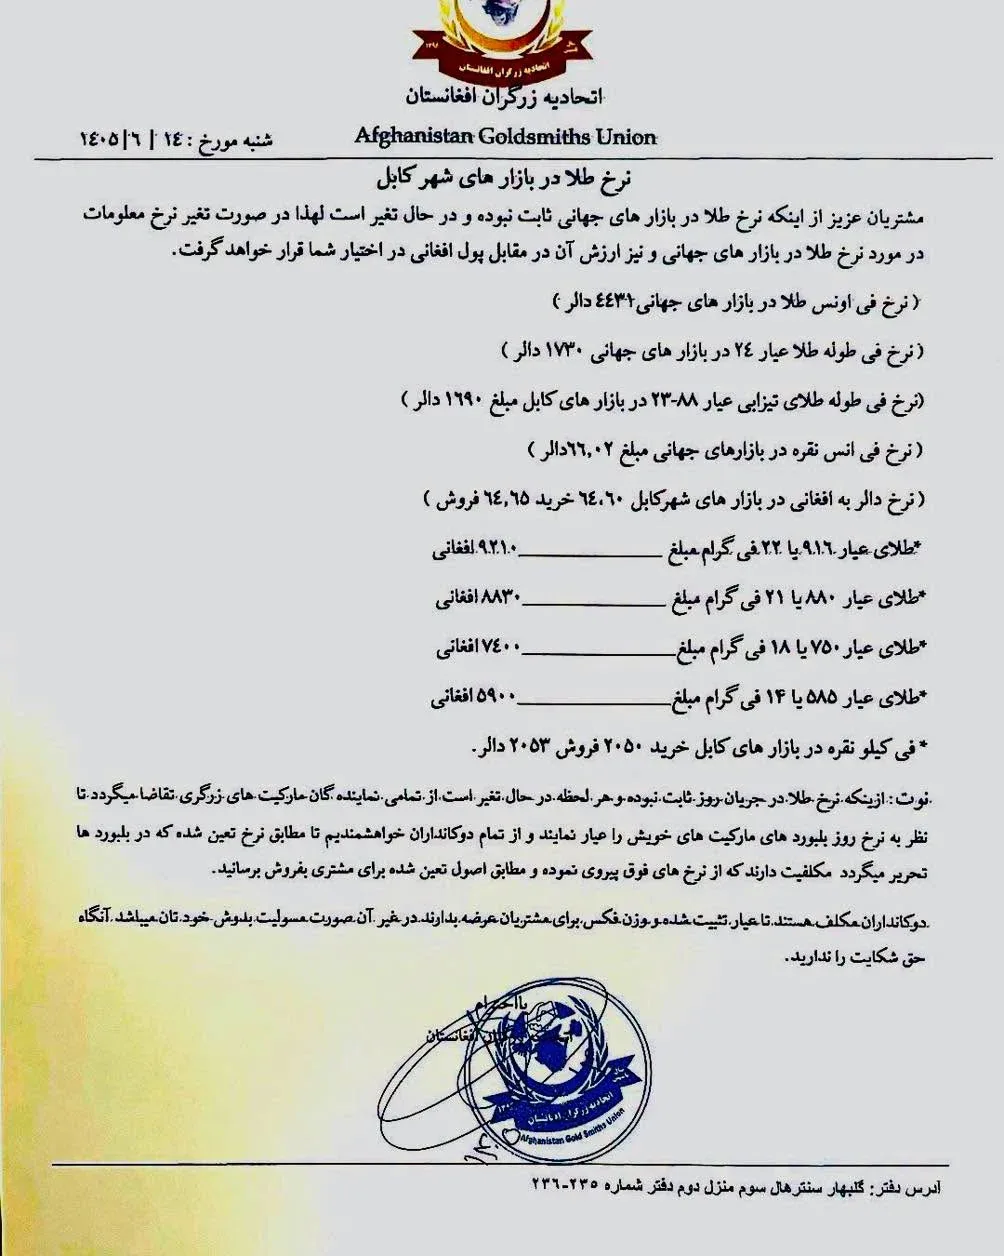 ۱۳۹۶
اتحادیه زرگران افغانستان
اتحادیه زرگران افغانستان
Afghanistan Goldsmiths Union
شنبه مورخ : ١٤ | ٦ | ١٤٠٥
نرخ طلا در بازار های شهر کابل
مشتریان عزیز از اینکه نرخ طلا در بازار های جهانی ثابت نبوده و در حال تغیر است لهذا در صورت تغیر نرخ معلومات
در مورد نرخ طلا در بازار های جهانی و نیز ارزش آن در مقابل پول افغانی در اختیار شما قرار خواهد گرفت.
( نرخ فی اونس طلا در بازار های جهانی ٤٤٣١ دالر )
( نرخ فی طوله طلا عیار ٢٤ در بازار های جهانی ١٧٣٠ دالر )
(نرخ فی طوله طلای تیزابی عیار ٨٨-٢٣ در بازار های کابل مبلغ ١٦٩٠ دالر )
( نرخ فی انس نقره در بازارهای جهانی مبلغ ٦٦,٠٢دالر )
( نرخ دالر به افغانی در بازار های شهرکابل ٦٤،٦٠ خرید ٦٤,٦٥ فروش )
*طلای عیار ٩١٦ یا ٢٢ فی گرام مبلغ ______________٩٢١٠ افغانی
*طلای عیار ٨٨٠ یا ٢١ فی گرام مبلغ ______________٨٨٣٠ افغانی
*طلای عیار ٧٥٠ یا ١٨ فی گرام مبلغ_______________٧٤٠٠ افغانی
*طلای عیار ٥٨٥ یا ١٤ فی گرام مبلغ_______________٥٩٠٠ افغانی
* فی کیلو نقره در بازار های کابل خرید ٢٠٥٠ فروش ٢٠٥٣ دالر.
نوت : ازینکه نرخ طلا در جریان روز ثابت نبوده و هر لحظه در حال تغیر است از تمامی نماینده گان مارکیت های زرگری تقاضا میگردد تا
نظر به نرخ روز بلبورد های مارکیت های خویش را عیار نمایند و از تمام دوکانداران خواهشمندیم تا مطابق نرخ تعین شده که در بلبورد ها
تحریر میگردد مکلفیت دارند که از نرخ های فوق پیروی نموده و مطابق اصول تعین شده برای مشتری بفروش برسانید.
دوکانداران مکلف هستند تا عیار تثبیت شده و وزن فکس برای مشتریان عرضه بدارند در غیر آن صورت مسولیت بدوش خود تان میباشد آنگاه
حق شکایت را ندارید.
بااحترام
اتحادیه زرگران افغانستان
اتحادیه زرگران افغانستان
Afghanistan Gold Smiths Union
آدرس دفتر: گلبهار سنترهال سوم منزل دوم دفتر شماره ٢٣٥-٢٣٦